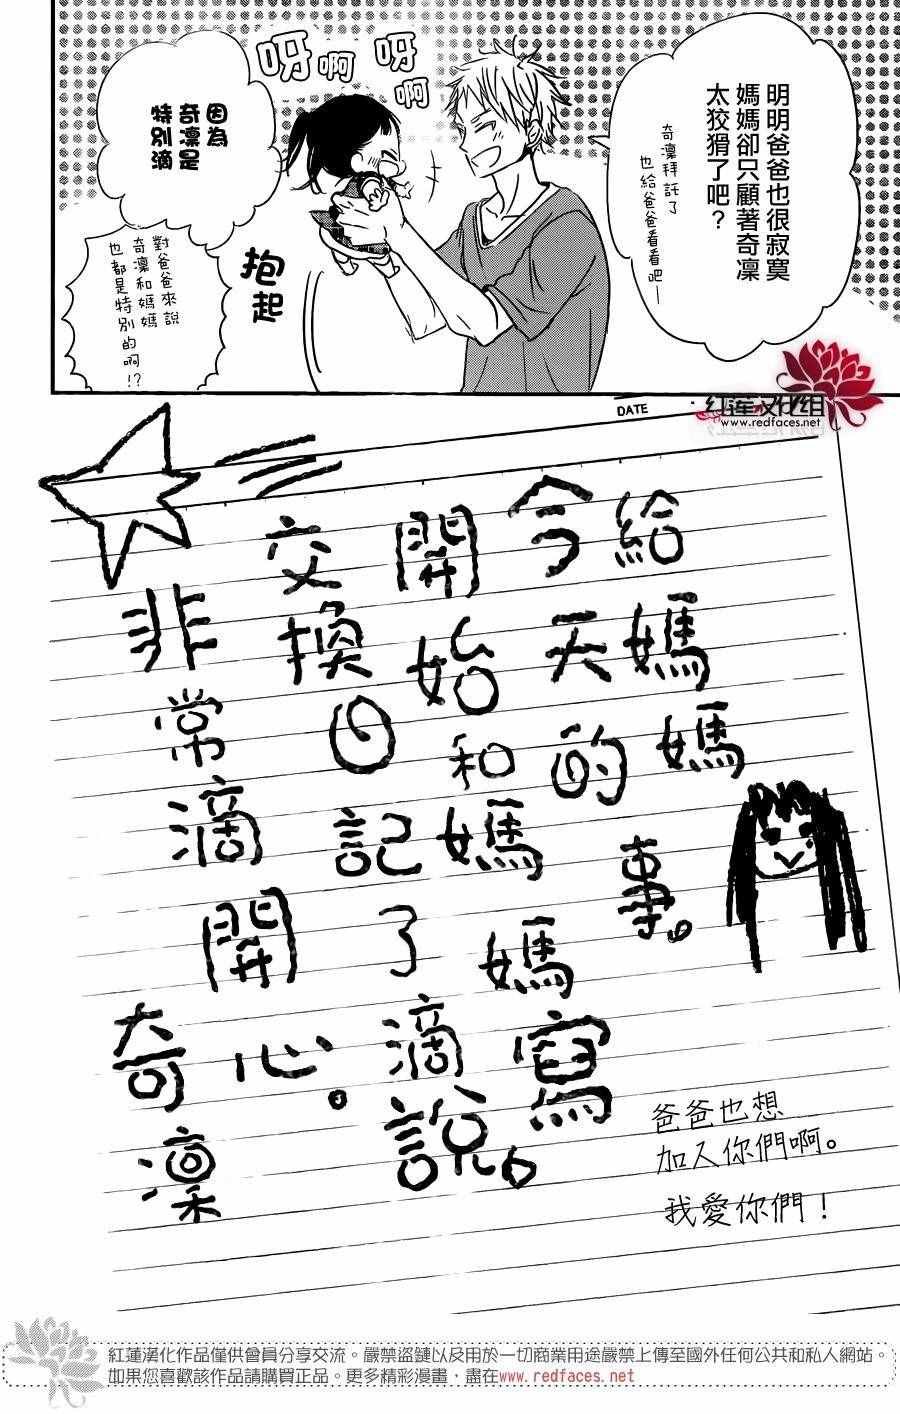 明明爸爸也很寂寞
媽媽卻只顧著奇凜
太狡猾了吧？
奇凜拜託了
也給爸爸看看吧—
呀
啊
呀
啊
因為
奇凜是
特別滴
抱起
對爸爸來說
奇凜和媽媽
也都是特別的啊!?
DATE
紅蓮汉化组
www.redfaces.net
給媽媽
今天的事。
開始和媽媽寫
交換日記了滴說。
非常滴開心。
奇凜
爸爸也想
加入你們啊。
我愛你們！
紅蓮漢化作品僅供會員分享交流。嚴禁盜鏈以及用於一切商業用途嚴禁上傳至國外任何公共和私人網站。
如果您喜歡該作品請購買正品。更多精彩漫畫，盡在www.redfaces.net